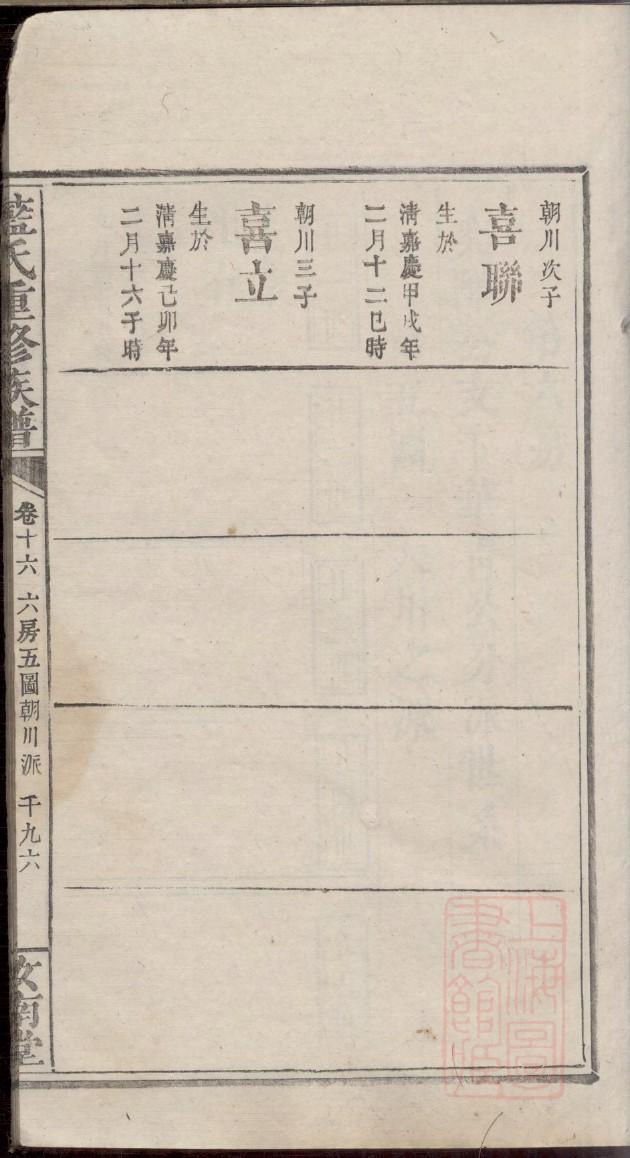 朝川次子
喜聯
生於
淸嘉慶甲戌年
二月十二巳時
朝川三子
喜立
生於
淸嘉慶己卯年
二月十六子時
藍氏重修族譜
卷十六 六房五圖朝川派 千九六
汝南堂
上海圖
書館藏